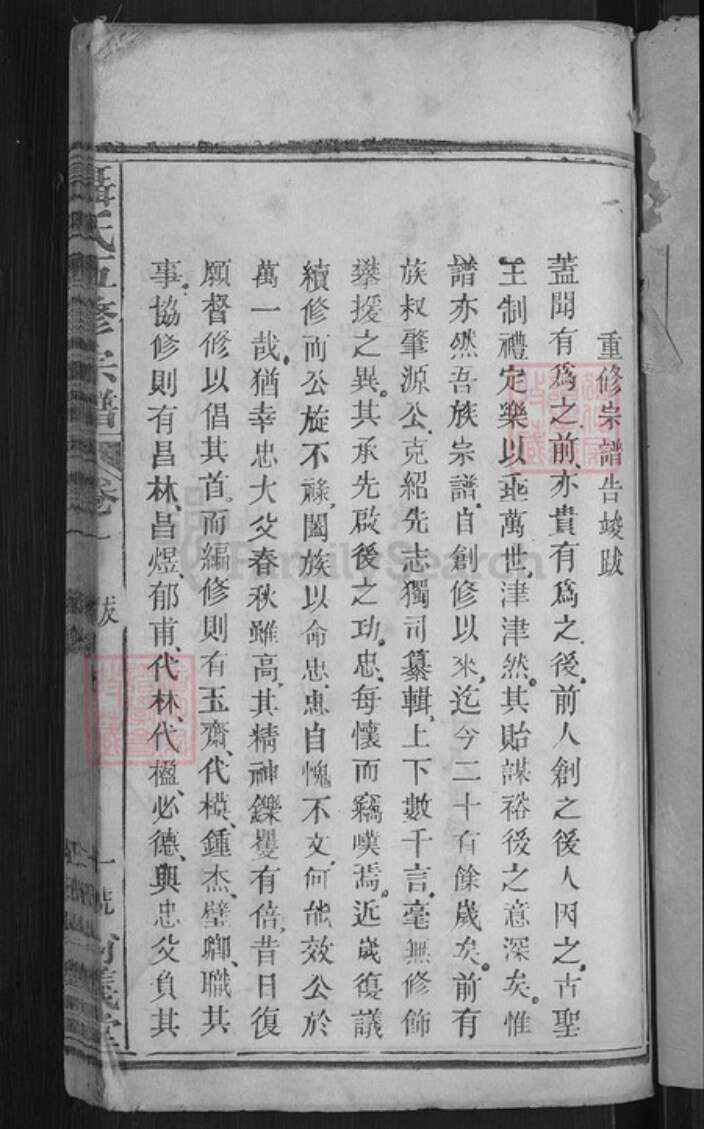 重修宗譜告竣跋
蓋聞有爲之前亦貴有爲之後前人創之後人因之古聖
王制禮定樂以垂萬世津津然其貽謀裕後之意深矣惟
譜亦然吾族宗譜自創修以來迄今二十有餘歲矣前有
族叔肇源公克紹先志獨司纂輯上下數千言毫無修飾
攀援之異其承先啟後之功忠每懷而竊嘆焉近歲復議
續修而公旋不祿闔族以命忠忠自愧不文何能效公於
萬一哉猶幸忠大父春秋雖高其精神鑠矍有倍昔日復
願督修以倡其首而編修則有玉齋代模鍾杰璧卿職其
事協修則有昌林昌煜郁甫代林代楹必德與忠父負其
聶氏五修宗譜 卷一 跋
FamilySearch